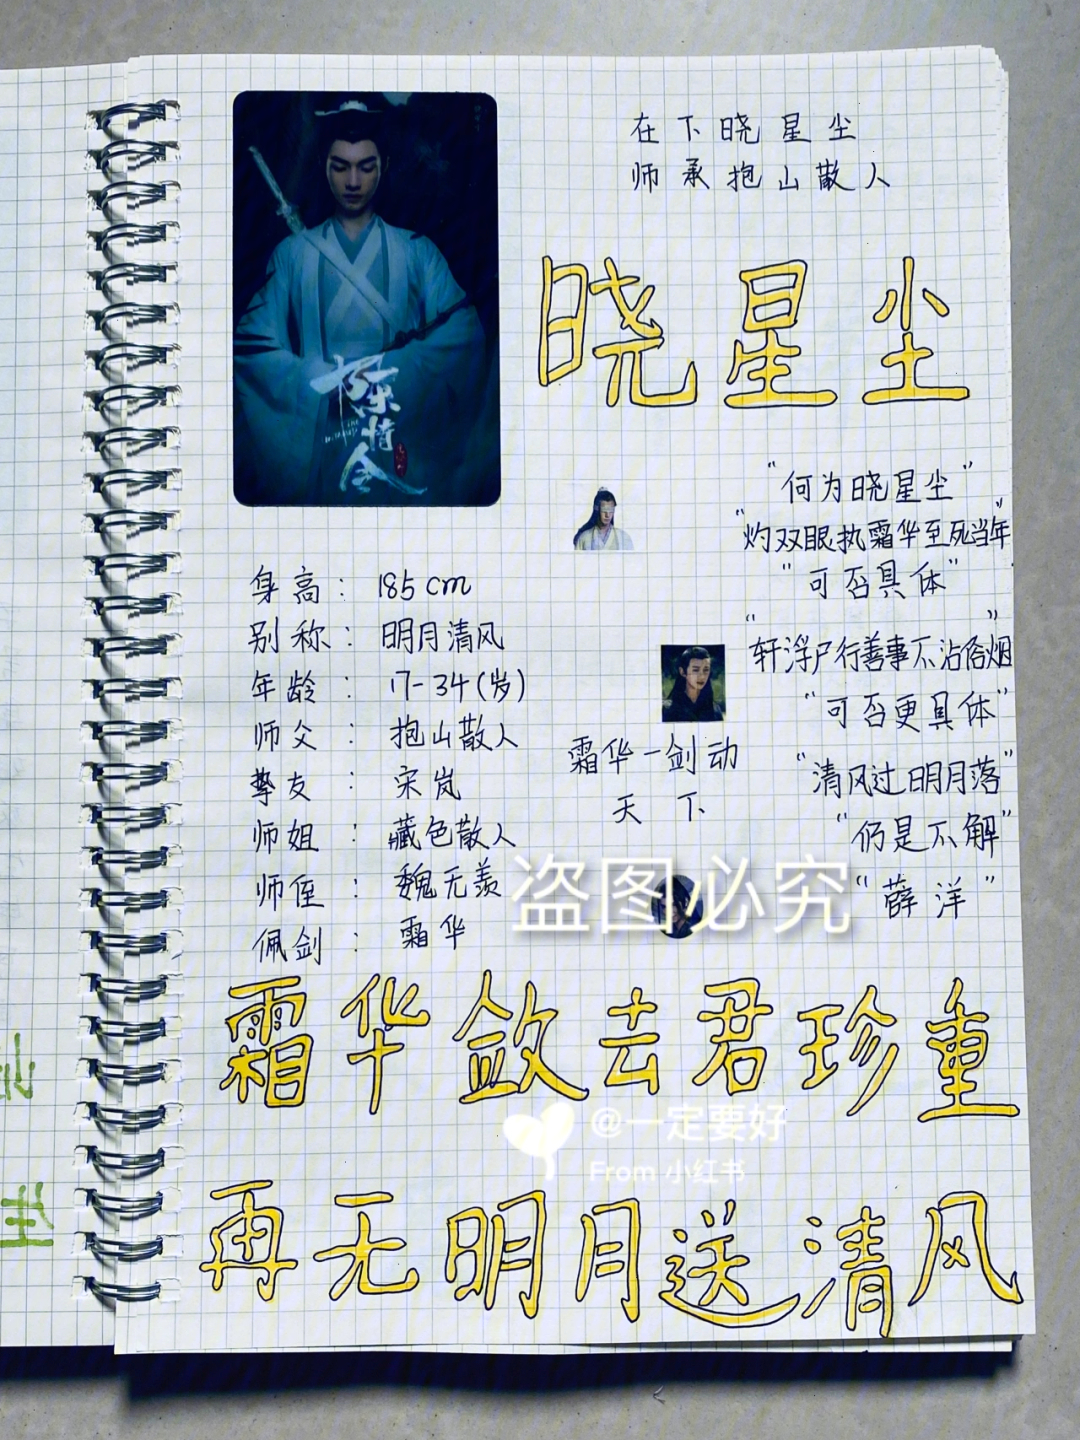 在下晓星尘
师承抱山散人
晓星尘
陈情令
THE UNTAMED
"何为晓星尘"
"灼双眼执霜华至死当年"
"可否具体"
"轩浮尸行善事不沾俗烟"
"可否更具体"
"清风过明月落"
"仍是不解"
"薛洋"
身高：185cm
别称：明月清风
年龄：17-34(岁)
师父：抱山散人
挚友：宋岚
师姐：藏色散人
师侄：魏无羡
佩剑：霜华
霜华一剑动
天下
盗图必究
霜华敛去君珍重
@一定要好
From 小红书
再无明月送清风
生